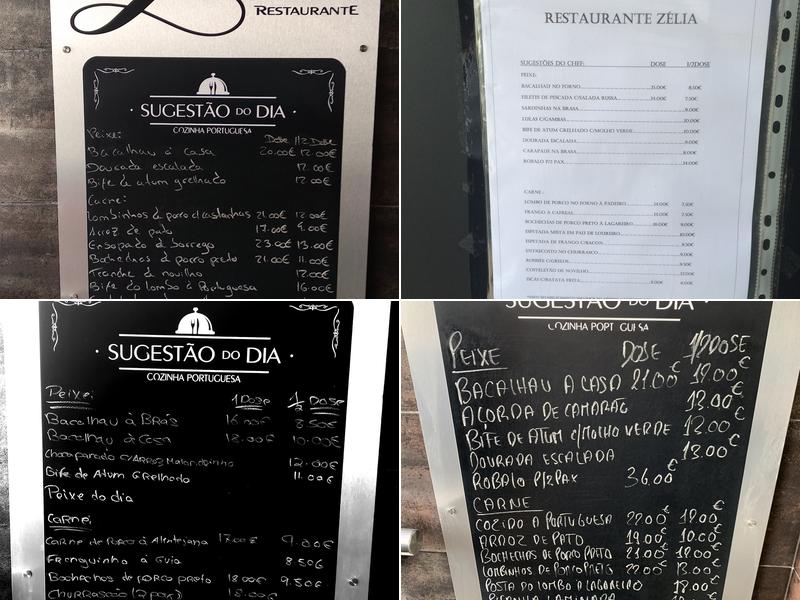 RESTAURANTE
SUGESTÃO DO DIA
COZINHA PORTUGUESA
Peixe: Dose 1/2 Dose
Bacalhau à casa 20.00€ 12.00€
Dourada escalada 12.00€
Bife de atum grelhado 12.00€
Carne:
Lombinhos de porco c/castanhas 21.00€ 12.00€
Arroz de pato 17.00€ 9.00€
Ensopado de borrego 23.00€ 13.00€
Bochechas de porco preto 21.00€ 11.00€
Tranche de novilho 12.00€
Bife do lombo à Portuguesa 16.00€
RESTAURANTE ZÉLIA
SUGESTÕES DO CHEF: DOSE 1/2DOSE
PEIXE:
BACALHAU NO FORNO 15.00€ 8.50€
FILETES DE PESCADA C/SALADA RUSSA 14.00€ 7.50€
SARDINHAS NA BRASA 9.00€
LULAS C/GAMBAS 10.00€
BIFE DE ATUM GRELHADO C/MOLHO VERDE 10.00€
DOURADA ESCALADA 9.00€
CARAPAUS NA BRASA 8.00€
ROBALO P/2 PAX 24.00€
CARNE:
LOMBO DE PORCO NO FORNO À PADEIRO 14.00€ 7.50€
FRANGO À CAFREAL 14.00€ 7.50€
BOCHECHAS DE PORCO PRETO À LAGAREIRO 16.00€ 9.00€
ESPETADA MISTA EM PAU DE LOUREIRO 10.00€
ESPETADA DE FRANGO C/BACON 8.50€
ENTRECOSTO NO CHURRASCO 8.00€
ROSBIFE C/GRELOS 9.50€
COSTELETÃO DE NOVILHO 12.00€
ISCAS C/BATATA FRITA 8.00€ 6.00€
SUGESTÃO DO DIA
COZINHA PORTUGUESA
Peixe: 1 Dose 1/2 Dose
Bacalhau à Brás 16.00€ 8.50€
Bacalhau à Casa 18.00€ 10.00€
Choco panado c/Arroz Malandrinho 12.00€
Bife de Atum Grelhado 11.00€
Peixe do dia
Carne:
Carne de Porco à Alentejana 17.00€ 9.00€
Franguinho à Guia 8.50€
Bochechas de porco preto 18.00€ 9.50€
Churrascão (2 pax) 18.00€
SUGESTÃO DO DIA
COZINHA PORTUGUESA
PEIXE DOSE 1/2DOSE
BACALHAU A CASA 21.00€ 12.00€
AÇORDA DE CAMARÃO 13.00€
BIFE DE ATUM C/MOLHO VERDE 12.00€
DOURADA ESCALADA 13.00€
ROBALO P/2PAX 36.00€
CARNE
COZIDO A PORTUGUESA 22.00€ 12.00€
ARROZ DE PATO 19.00€ 10.00€
BOCHECHAS DE PORCO PRETO 21.00€ 12.00€
LOMBINHOS DE PORCO PRETO 22.00€ 13.00€
POSTA DO LOMBO A LAGAREIRO 18.00€
PICANHA LAMINADA